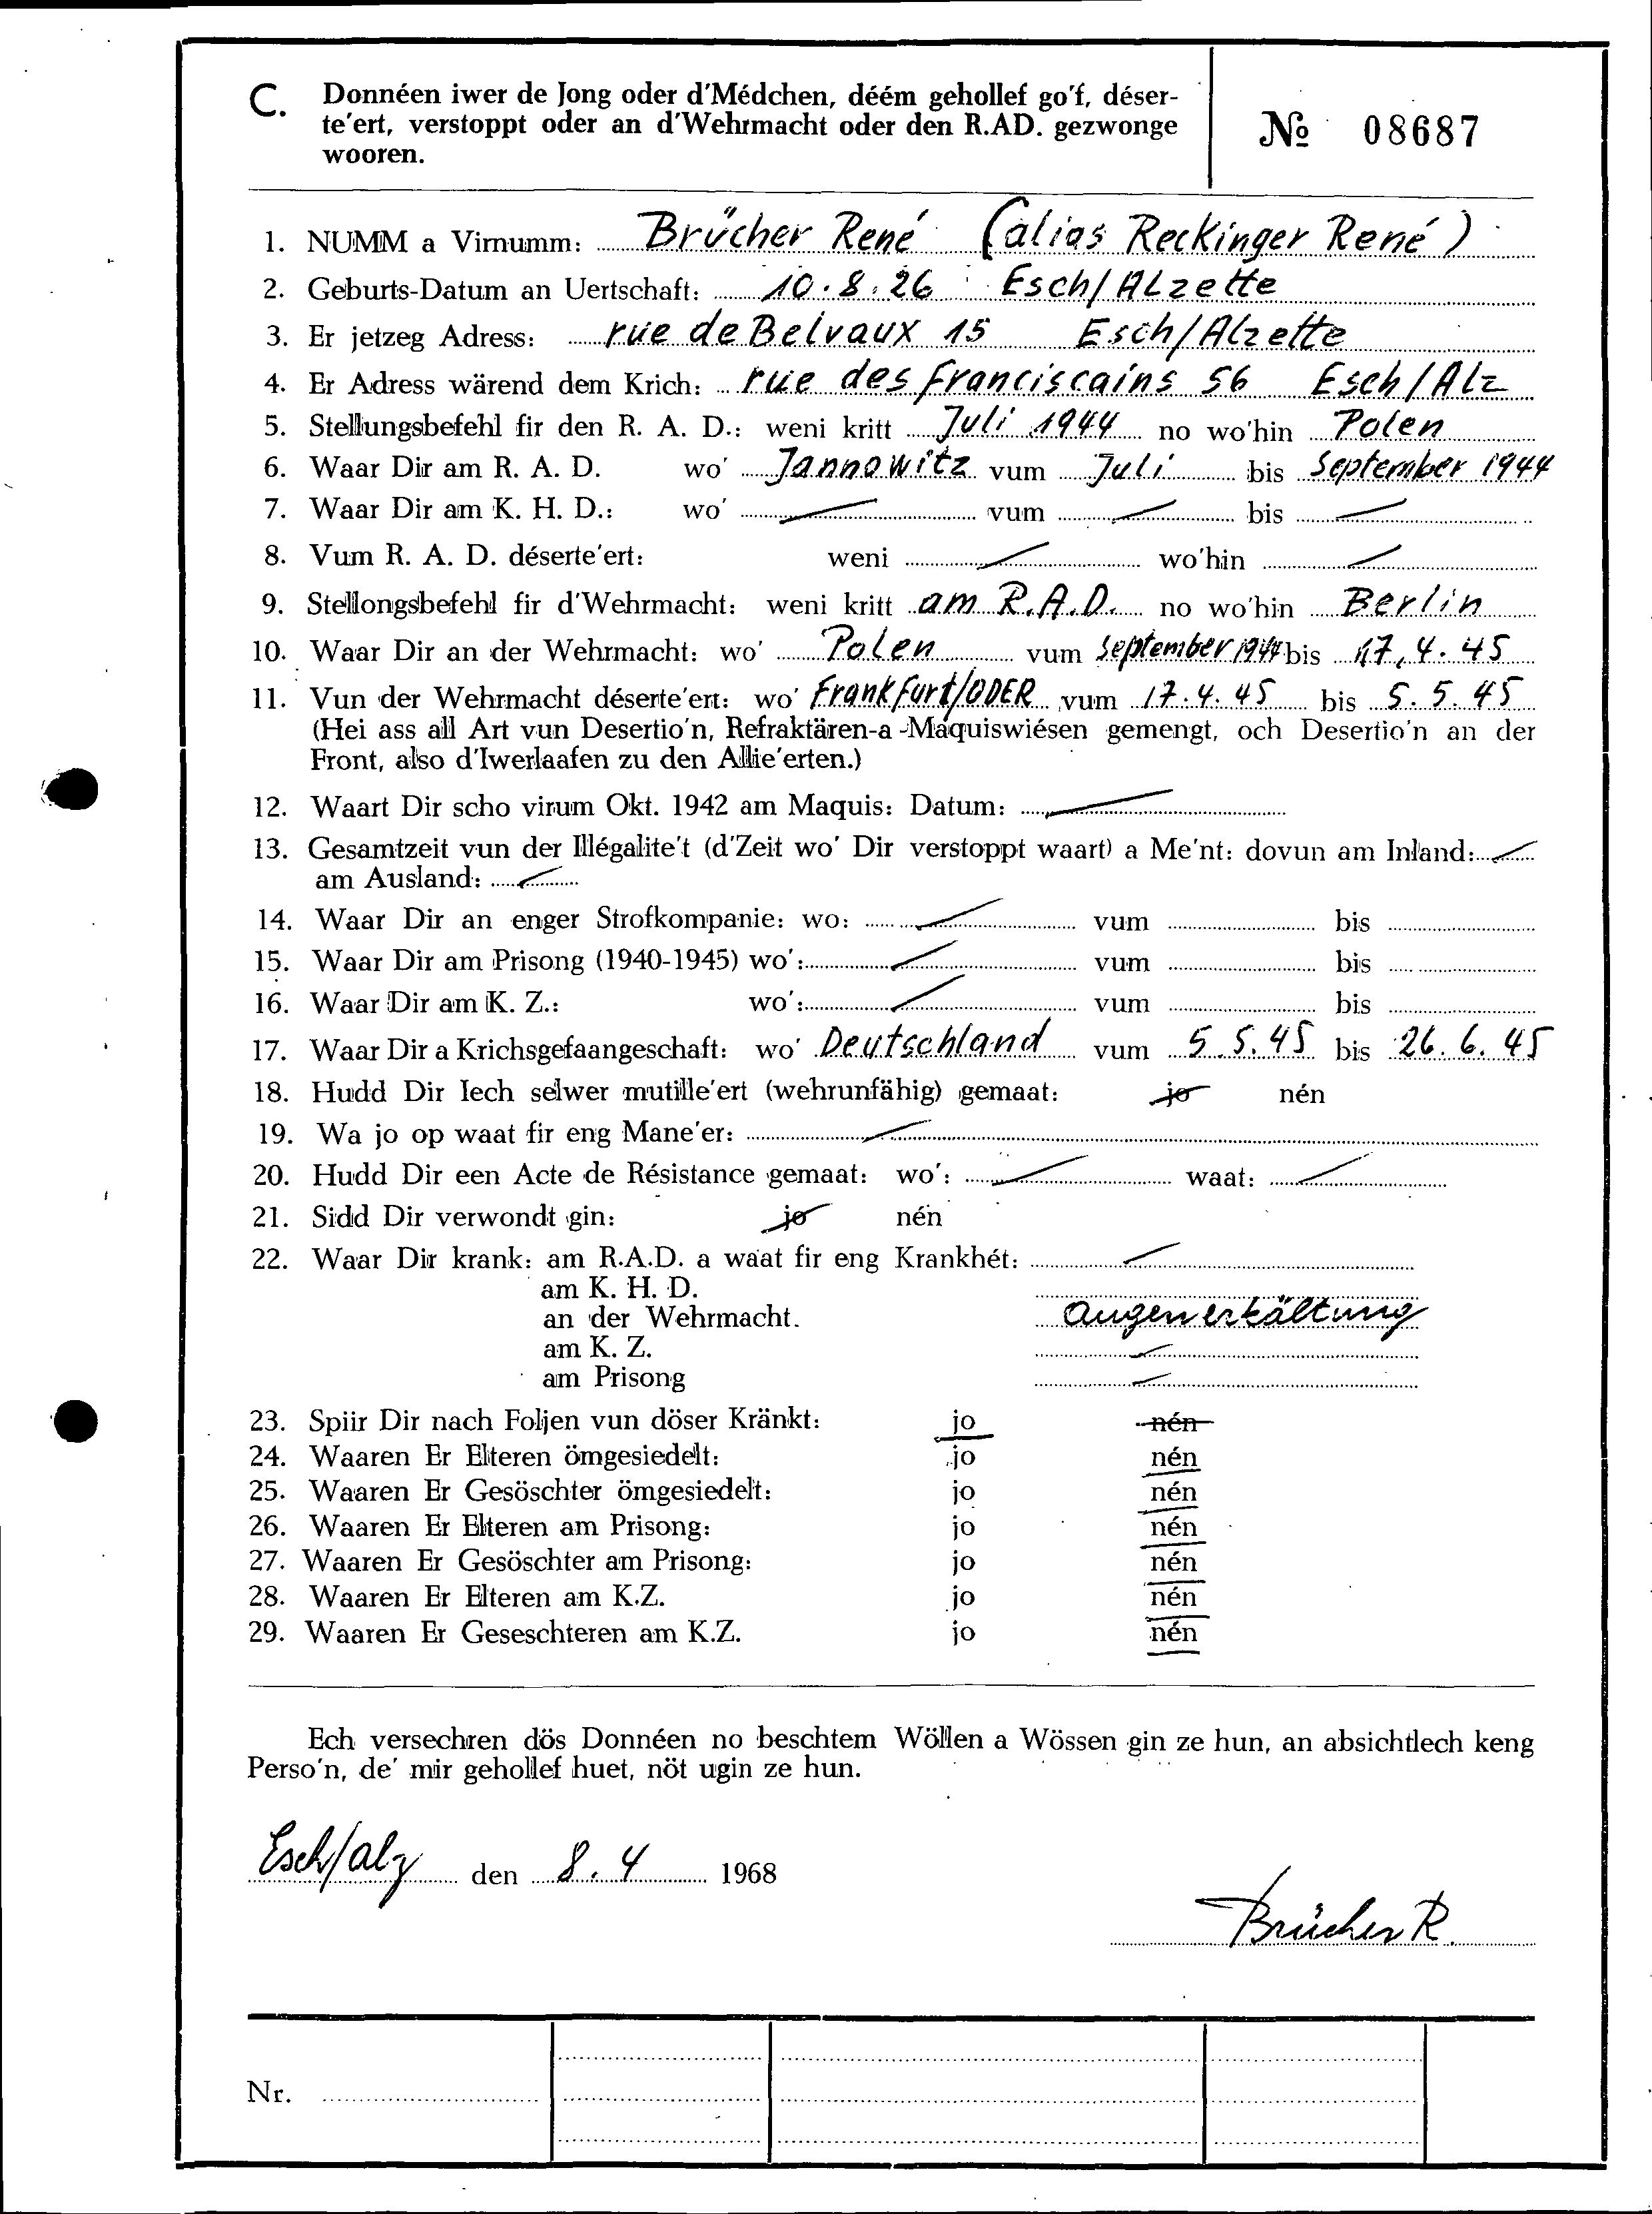 C. Donnéen iwer de Jong oder d'Médchen, déém gehollef go'f, déser-
te'ert, verstoppt oder an d'Wehrmacht oder den R.AD. gezwonge
wooren.
№ 08687
1. NUMM a Virnumm: Brücher René (alias Reckinger René)
2. Geburts-Datum an Uertschaft: 10.8.26 Esch/Alzette
3. Er jetzeg Adress: rue de Belvaux 15 Esch/Alzette
4. Er Adress wärend dem Krich: rue des Franciscains 56 Esch/Alz
5. Stellungsbefehl fir den R. A. D.: weni kritt Juli 1944 no wo'hin Polen
6. Waar Dir am R. A. D. wo' Jannowitz vum Juli bis September 1944
7. Waar Dir am K. H. D.: wo' vum bis
8. Vum R. A. D. déserte'ert: weni wo'hin
9. Stellongsbefehl fir d'Wehrmacht: weni kritt am R.A.D. no wo'hin Berlin
10. Waar Dir an der Wehrmacht: wo' Polen vum September 1944 bis 17.4.45
11. Vun der Wehrmacht déserte'ert: wo' Frankfurt/ODER vum 17.4.45 bis 5.5.45
(Hei ass all Art vun Desertio'n, Refraktären-a -Maquiswiésen gemengt, och Desertio'n an der
Front, also d'Iwerlaafen zu den Allie'erten.)
12. Waart Dir scho virum Okt. 1942 am Maquis: Datum:
13. Gesamtzeit vun der Illégalite't (d'Zeit wo' Dir verstoppt waart) a Me'nt: dovun am Inland:
am Ausland:
14. Waar Dir an enger Strofkompanie: wo: vum bis
15. Waar Dir am Prisong (1940-1945) wo': vum bis
16. Waar Dir am K. Z.: wo': vum bis
17. Waar Dir a Krichsgefaangeschaft: wo' Deutschland vum 5.5.45 bis 26.6.45
18. Hudd Dir Iech selwer mutille'ert (wehrunfähig) gemaat: jo nén
19. Wa jo op waat fir eng Mane'er:
20. Hudd Dir een Acte de Résistance gemaat: wo': waat:
21. Sidd Dir verwondt gin: jo nén
22. Waar Dir krank: am R.A.D. a waat fir eng Krankhét:
am K. H. D.
an der Wehrmacht. Augenerkältung
am K. Z.
am Prisong
23. Spiir Dir nach Foljen vun döser Kränkt: jo nén
24. Waaren Er Elteren ömgesiedelt: jo nén
25. Waaren Er Gesöschter ömgesiedelt: jo nén
26. Waaren Er Elteren am Prisong: jo nén
27. Waaren Er Gesöschter am Prisong: jo nén
28. Waaren Er Elteren am K.Z. jo nén
29. Waaren Er Geseschteren am K.Z. jo nén
Ech versechren dös Donnéen no beschtem Wöllen a Wössen gin ze hun, an absichtlech keng
Perso'n, de' mir gehollef huet, nöt ugin ze hun.
Esch/alz den 8.4 1968
Brücher R.
Nr.